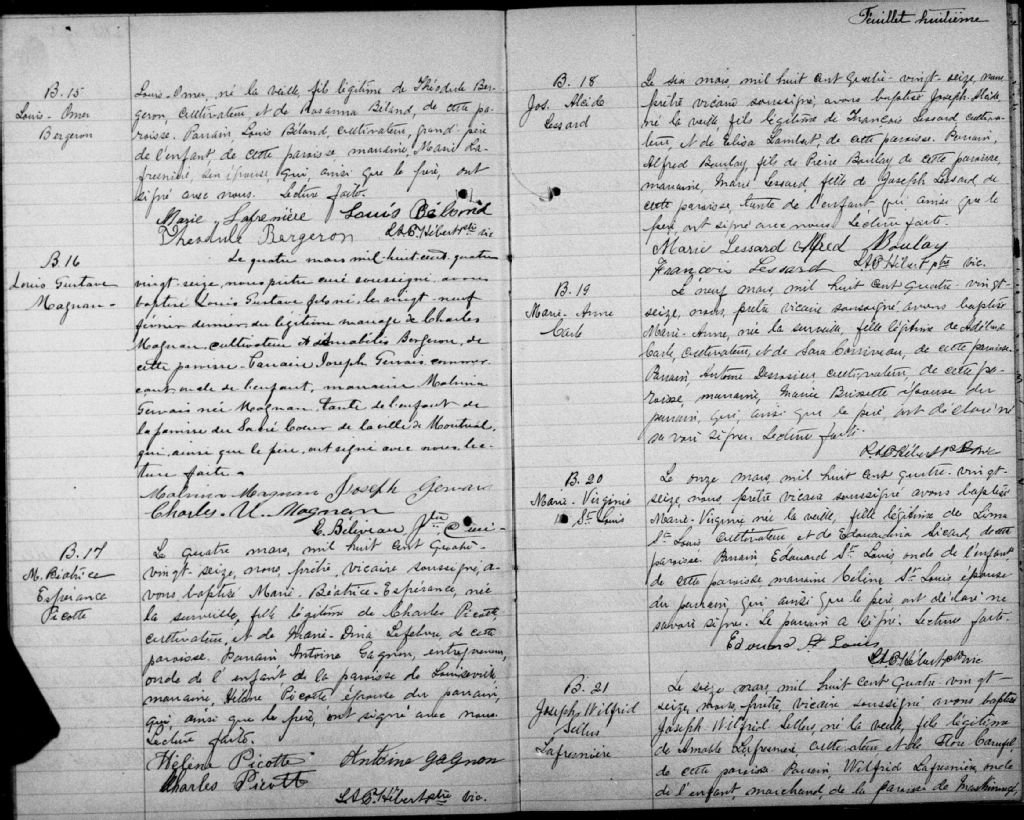 B. 15
Louis-Omer
Bergeron
Louis-Omer, né la veille, fils légitime de Théodule Ber-
geron, cultivateur, et de Rosanna Béland, de cette pa-
roisse. Parrain Louis Béland, cultivateur, grand-père
de l'enfant, de cette paroisse, marraine, Marie La-
frenière, son épouse, qui, ainsi que le père, ont
signé avec nous. Lecture faite.
Marie Lafrenière Louis Béland
Theodule Bergeron L.A.P. Hébert ptre vic.
B 16
Louis Gustave
Magnan-
Le quatre mars mil-huit-cent quatre
vingt-seize, nous prêtre curé soussigné, avons
baptisé Louis Gustave né, le vingt neuf
février dernier, du légitime mariage de Charles
Magnan, cultivateur et Bergeron, de
cette paroisse. Parrain Joseph Gervais commer-
cant, oncle de l'enfant, marraine Malvina
Gervais née Magnan, tante de l'enfant de
la paroisse du Sacré Coeur de la ville de Montréal,
qui, ainsi que le père, ont signé avec nous. lec-
ture faite-
Malvina Magnan Joseph Gervais
Charles-U. Magnan
E. Bélinau Ptre Curé-
B. 17
M. Béatrice
Espérance
Picotte
Le quatre mars, mil huit cent quatre-
vingt-seize, nous, prêtre, vicaire soussigné, a-
vons baptisé Marie-Béatrice-Espérance, née
la surveille, fille légitime de Charles Picotte,
cultivateur, et de Marie-Dina Lefebvre, de cette
paroisse. Parrain Antoine Gagnon, entrepreneur,
oncle de l'enfant de la paroisse de Louiseville,
marraine, Hélène Picotte épouse du parrain,
qui ainsi que le père, ont signé avec nous.
Lecture faite.
Héléna Picotte Antoine Gagnon
Charles Picott
L.A.P. Hébert ptre vic.
Feuillet huitième
B. 18
Jos. Alcide
Lessard
Le six mars, mil huit cent quatre-vingt-seize, nous
prêtre vicaire soussigné, avons baptisé Joseph-Alcide,
né la veille fils légitime de François Lessard cultiva-
teur, et de Elisa Lambert, de cette paroisse. Parrain,
Alfred Boulay, fils de Pierre Boulay de cette paroisse,
marraine, Marie Lessard, fille de Joseph Lessard, de
cette paroisse tante de l'enfant qui ainsi que le
père, ont signé avec nous. Lecture faite.
Marie Lessard Alfred Boulay
François Lessard L.A.P. Hébert ptre vic.
B. 19
Marie-Anne
Carle
Le neuf mars, mil huit cent quatre-vingt-
seize, nous, prêtre vicaire soussigné, avons baptisé
Marie-Anne, née la surveille, fille légitime de
Carle, cultivateur, et de Sara Corriveau, de cette paroisse.
Parrain, Antoine Desrosiers cultivateur, de cette pa-
roisse, marraine, Marie Brissette épouse du
parrain, qui, ainsi que le père ont déclaré ne
savoir signer. Lecture faite.
L.A.P. Hébert ptre vic
B. 20
Marie-Virginie
St. Louis
Le onze mars, mil huit cent quatre-vingt-
seize, nous prêtre vicaire soussigné avons baptisé
Marie-Virginie née la veille, fille légitime de
St. Louis cultivateur et de Sicard, de cette
paroisse. Parrain Edouard St. Louis, oncle de l'enfant
de cette paroisse, marraine Céline St. Louis épouse
du parrain, qui ainsi que le père ont déclaré ne
savoir signer. Le parrain a signé. Lecture faite.
Edouard St Louis
L.A.P. Hébert ptre vic
B. 21
Joseph Wilfrid
Lafrenière
Le seize mars, mil huit cent quatre-vingt-
seize, nous, prêtre, vicaire soussigné avons baptisé
Joseph Wilfrid né la veille, fils légitime
de Amable Lafrenière cultivateur et de Flore
de cette paroisse Parrain, Wilfrid Lafrenière, oncle
de l'enfant, marchand, de la paroisse de Maskinongé,